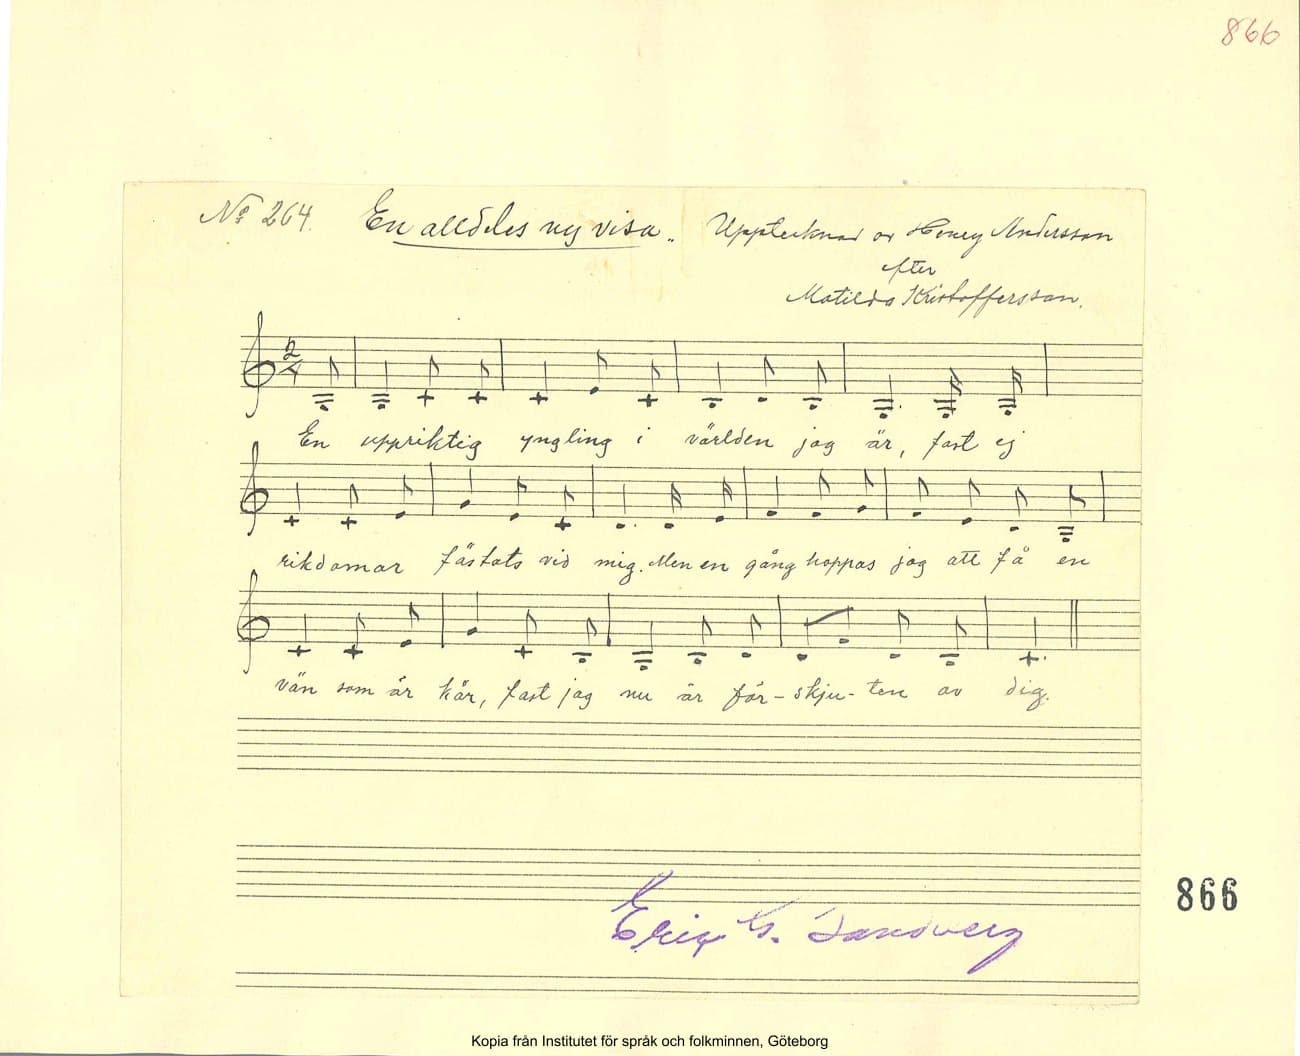 866
No 264. En alldeles ny visa. Upptecknad av Henry Andersson
efter
Matilda Kristoffersson.
2
4
En uppriktig yngling i världen jag är, fast ej
rikdomar fästats vid mig. Men en gång hoppas jag att få en
vän som är kär, fast jag nu är för-skju-ten av dig.
866
Eric G. Sandberg
Kopia från Institutet för språk och folkminnen, Göteborg